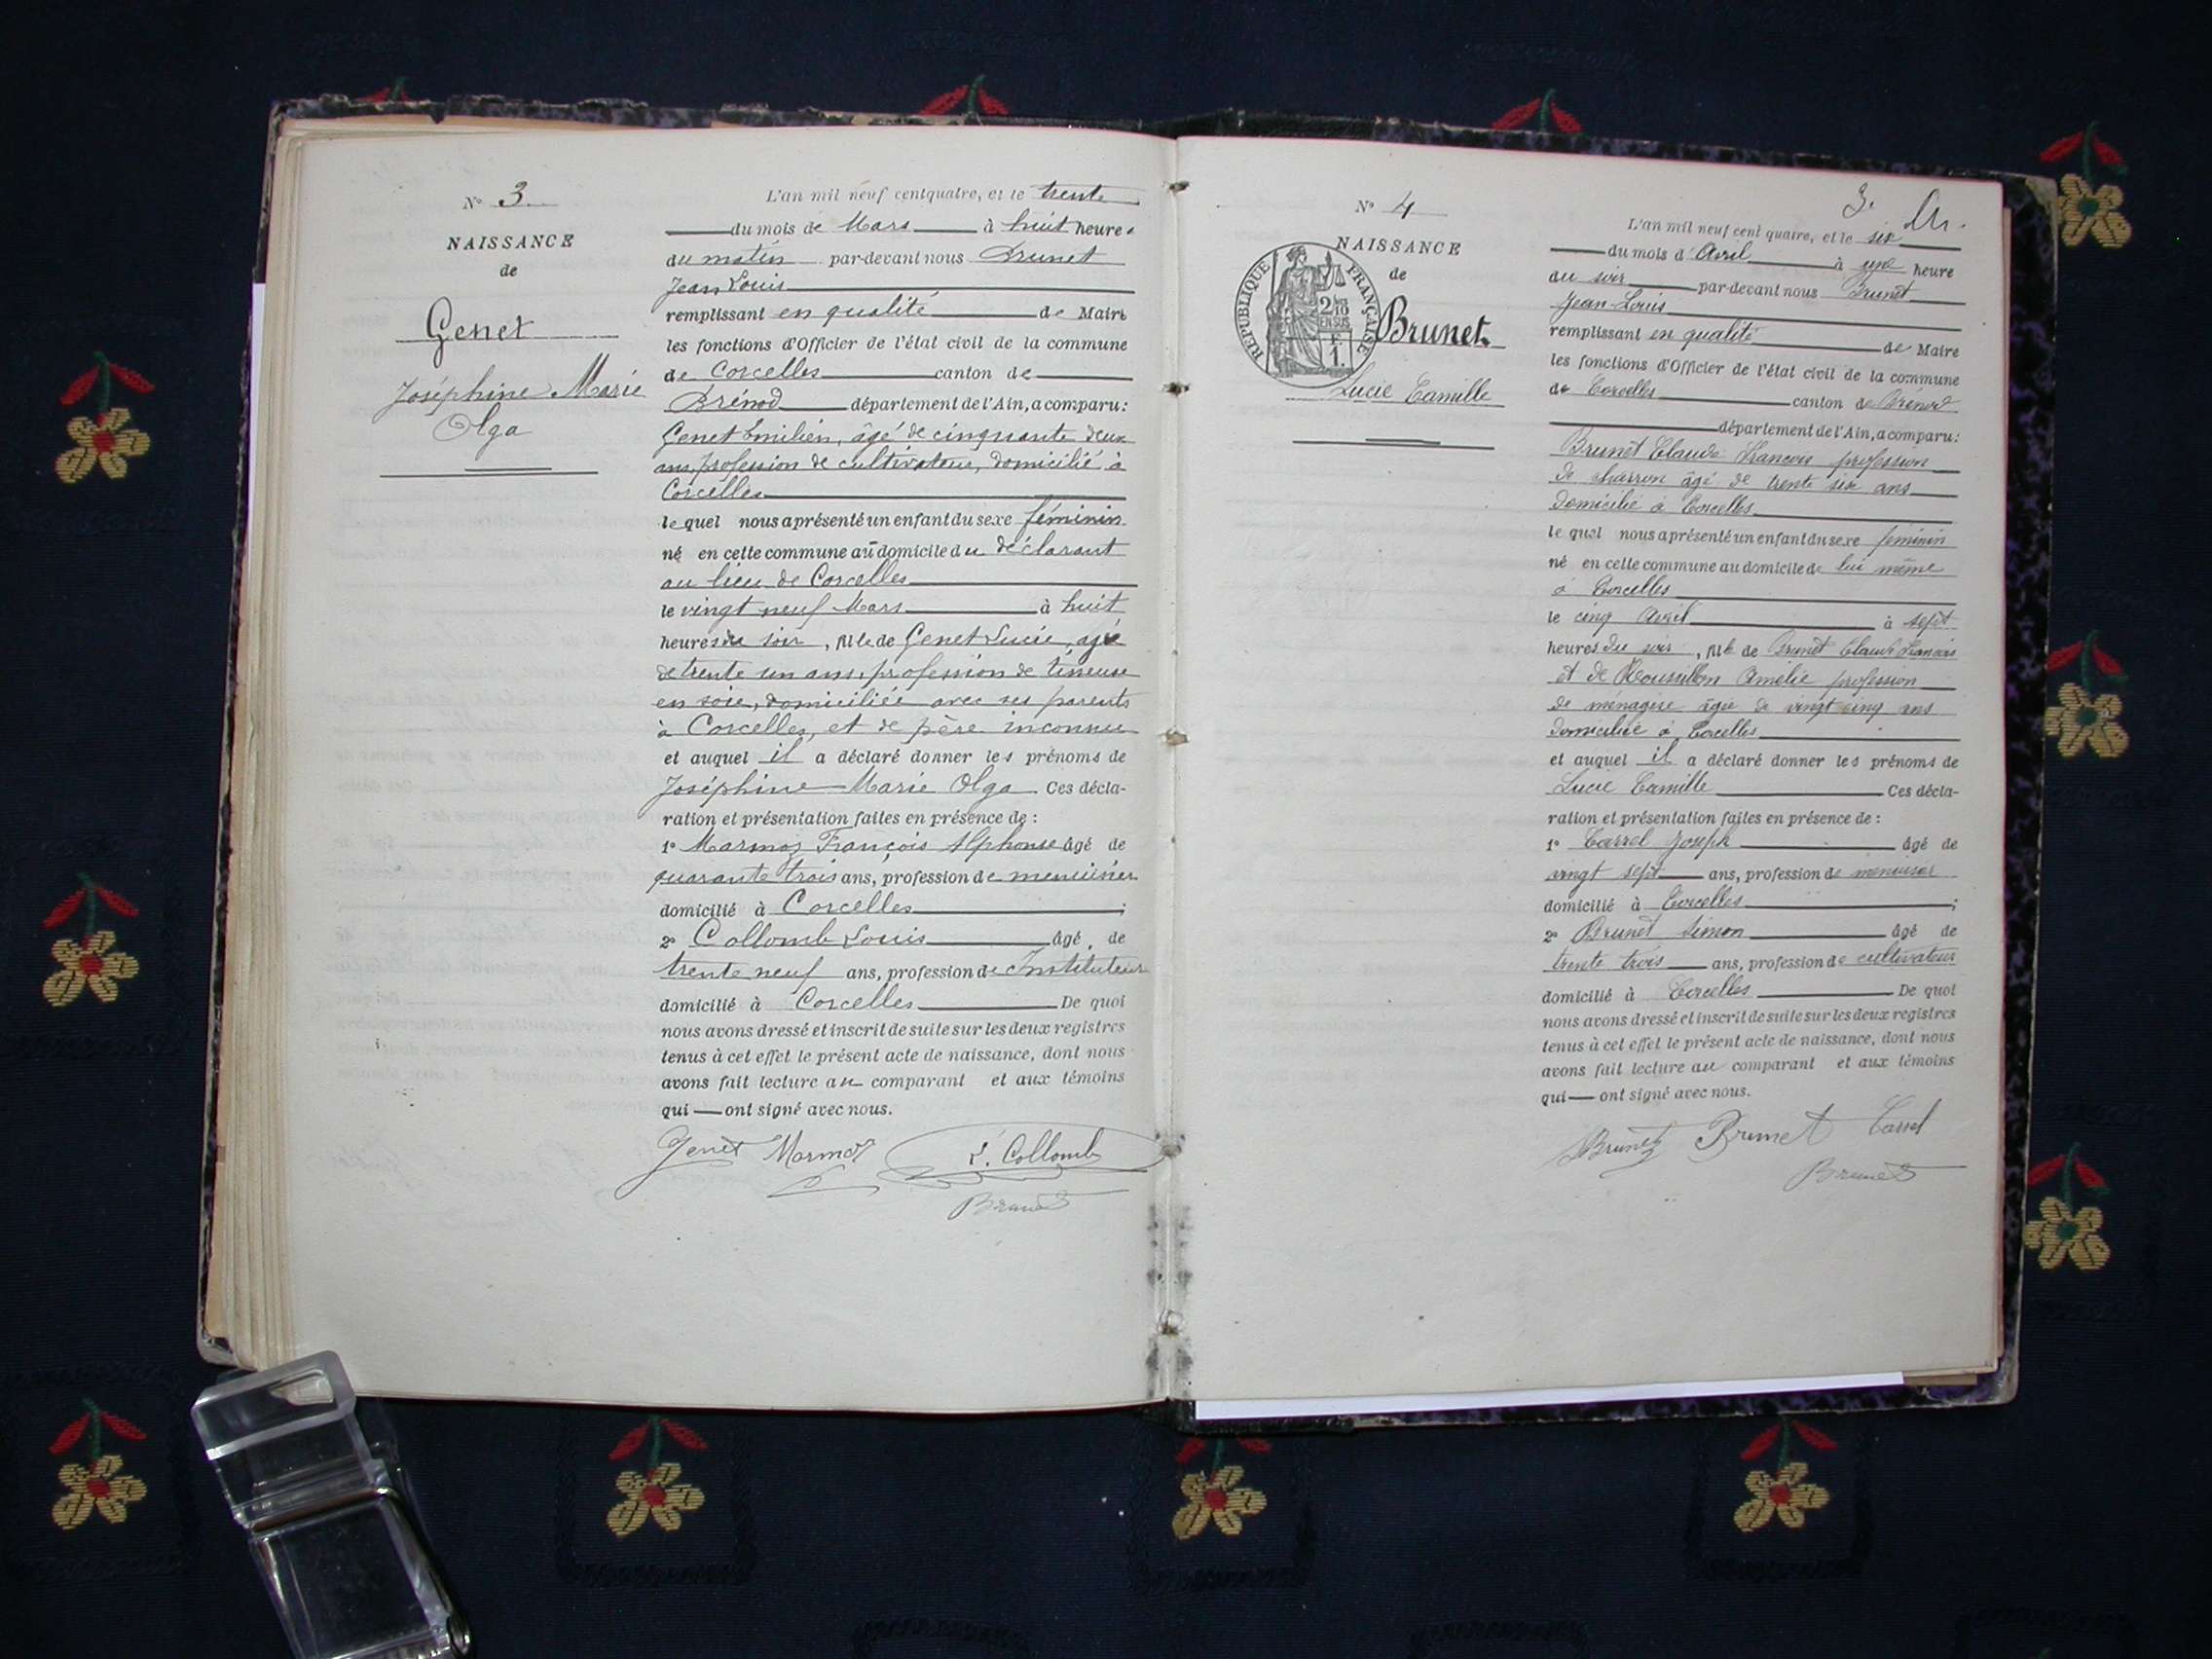 N° 3
NAISSANCE
de
Genet
Joséphine Marie
Olga
L'an mil neuf cent quatre, et le trente
du mois de Mars à huit heures
du matin par-devant nous Brunet
Jean Louis
remplissant en qualité de Maire
les fonctions d'Officier de l'état civil de la commune
de Corcelles canton de
Brénod département de l'Ain, a comparu:
Genet Emilien, âgé de cinquante deux
ans, profession de cultivateur, domicilié à
Corcelles
lequel nous a présenté un enfant du sexe féminin
né en cette commune au domicile du déclarant
au lieu de Corcelles
le vingt neuf Mars à huit
heures du soir, fille de Genet Lucie, agée
de trente un ans, profession de tisseuse
en soie, domiciliée avec ses parents
à Corcelles, et de père inconnu
et auquel il a déclaré donner les prénoms de
Joséphine Marie Olga Ces décla-
ration et présentation faites en présence de :
1° Marmoz François Alphonse âgé de
quarante trois ans, profession de menuisier
domicilié à Corcelles ;
2° Collomb Louis âgé de
trente neuf ans, profession de Instituteur
domicilié à Corcelles De quoi
nous avons dressé et inscrit de suite sur les deux registres
tenus à cet effet le présent acte de naissance, dont nous
avons fait lecture au comparant et aux témoins
qui ont signé avec nous.
Genet Marmoz L. Collomb
Brunet
3.
N° 4
NAISSANCE
de
RÉPUBLIQUE FRANÇAISE
2/10
EN SUS
F.
1.
Brunet
Lucie Camille
L'an mil neuf cent quatre, et le six
du mois d'Avril à une heure
du soir par-devant nous Brunet
Jean-Louis
remplissant en qualité de Maire
les fonctions d'Officier de l'état civil de la commune
de Corcelles canton de Brénod
département de l'Ain, a comparu:
Brunet Claude François profession
de charron âgé de trente six ans
domicilié à Corcelles
lequel nous a présenté un enfant du sexe féminin
né en cette commune au domicile de lui même
à Corcelles
le cinq Avril à sept
heures du soir, fille de Brunet Claude François
et de Roussillon Amélie profession
de ménagère âgée de vingt cinq ans
domiciliée à Corcelles
et auquel il a déclaré donner les prénoms de
Lucie Camille Ces décla-
ration et présentation faites en présence de :
1° Carrel Joseph âgé de
vingt sept ans, profession de menuisier
domicilié à Corcelles ;
2° Brunet Simon âgé de
trente trois ans, profession de cultivateur
domicilié à Corcelles De quoi
nous avons dressé et inscrit de suite sur les deux registres
tenus à cet effet le présent acte de naissance, dont nous
avons fait lecture au comparant et aux témoins
qui ont signé avec nous.
Brunet Brunet Carrel
Brunet